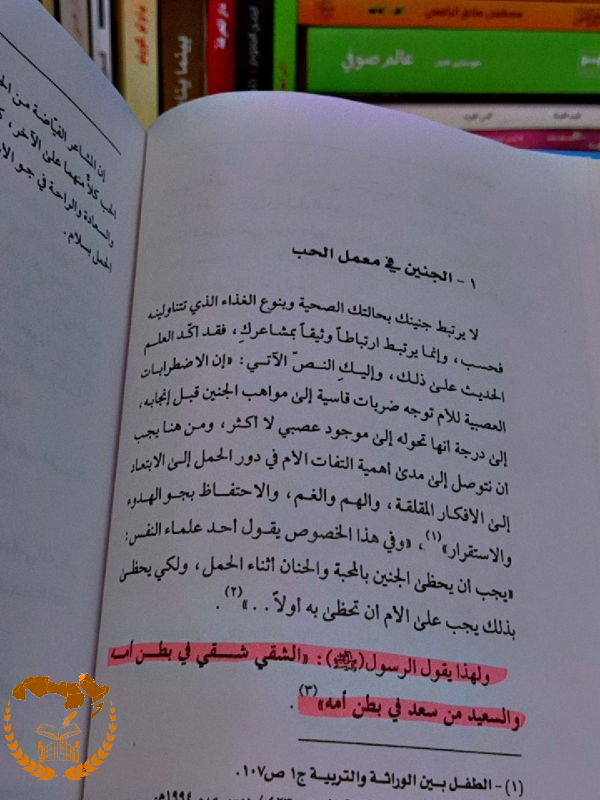 عالم صوفي
إن المشاعر الفيّاضة من
الحب كلاً منهما على الآخر،
والسعادة والراحة في جو
الحمل بسلام.
١ - الجنين في معمل الحب
لا يرتبط جنينك بحالتك الصحية وبنوع الغذاء الذي تتناولينه
فحسب، وإنما يرتبط ارتباطاً وثيقاً بمشاعركِ، فقد اكّد العلم
الحديث على ذلك، وإليكِ النصّ الآتي: «إن الاضطرابات
العصبية للام توجه ضربات قاسية إلى مواهب الجنين قبل إنجابه،
إلى درجة انها تحوله إلى موجود عصبي لا اكثر، ومن هنا يجب
ان نتوصل إلى مدى أهمية التفات الام في دور الحمل إلى الابتعاد
إلى الافكار المقلقة، والهم والغم، والاحتفاظ بجو الهدوء
والاستقرار»(١)، «وفي هذا الخصوص يقول أحد علماء النفس:
«يجب ان يحظى الجنين بالمحبة والحنان أثناء الحمل، ولكي يحظى
بذلك يجب على الام ان تحظى به أولاً..»(٢).
ولهذا يقول الرسول(ﷺ): «الشقي شقي في بطن أمه
والسعيد من سعد في بطن أمه»(٣).
(١) - الطفل بين الوراثة والتربية ج١ ص١٠٧.
١٩٩٤م.